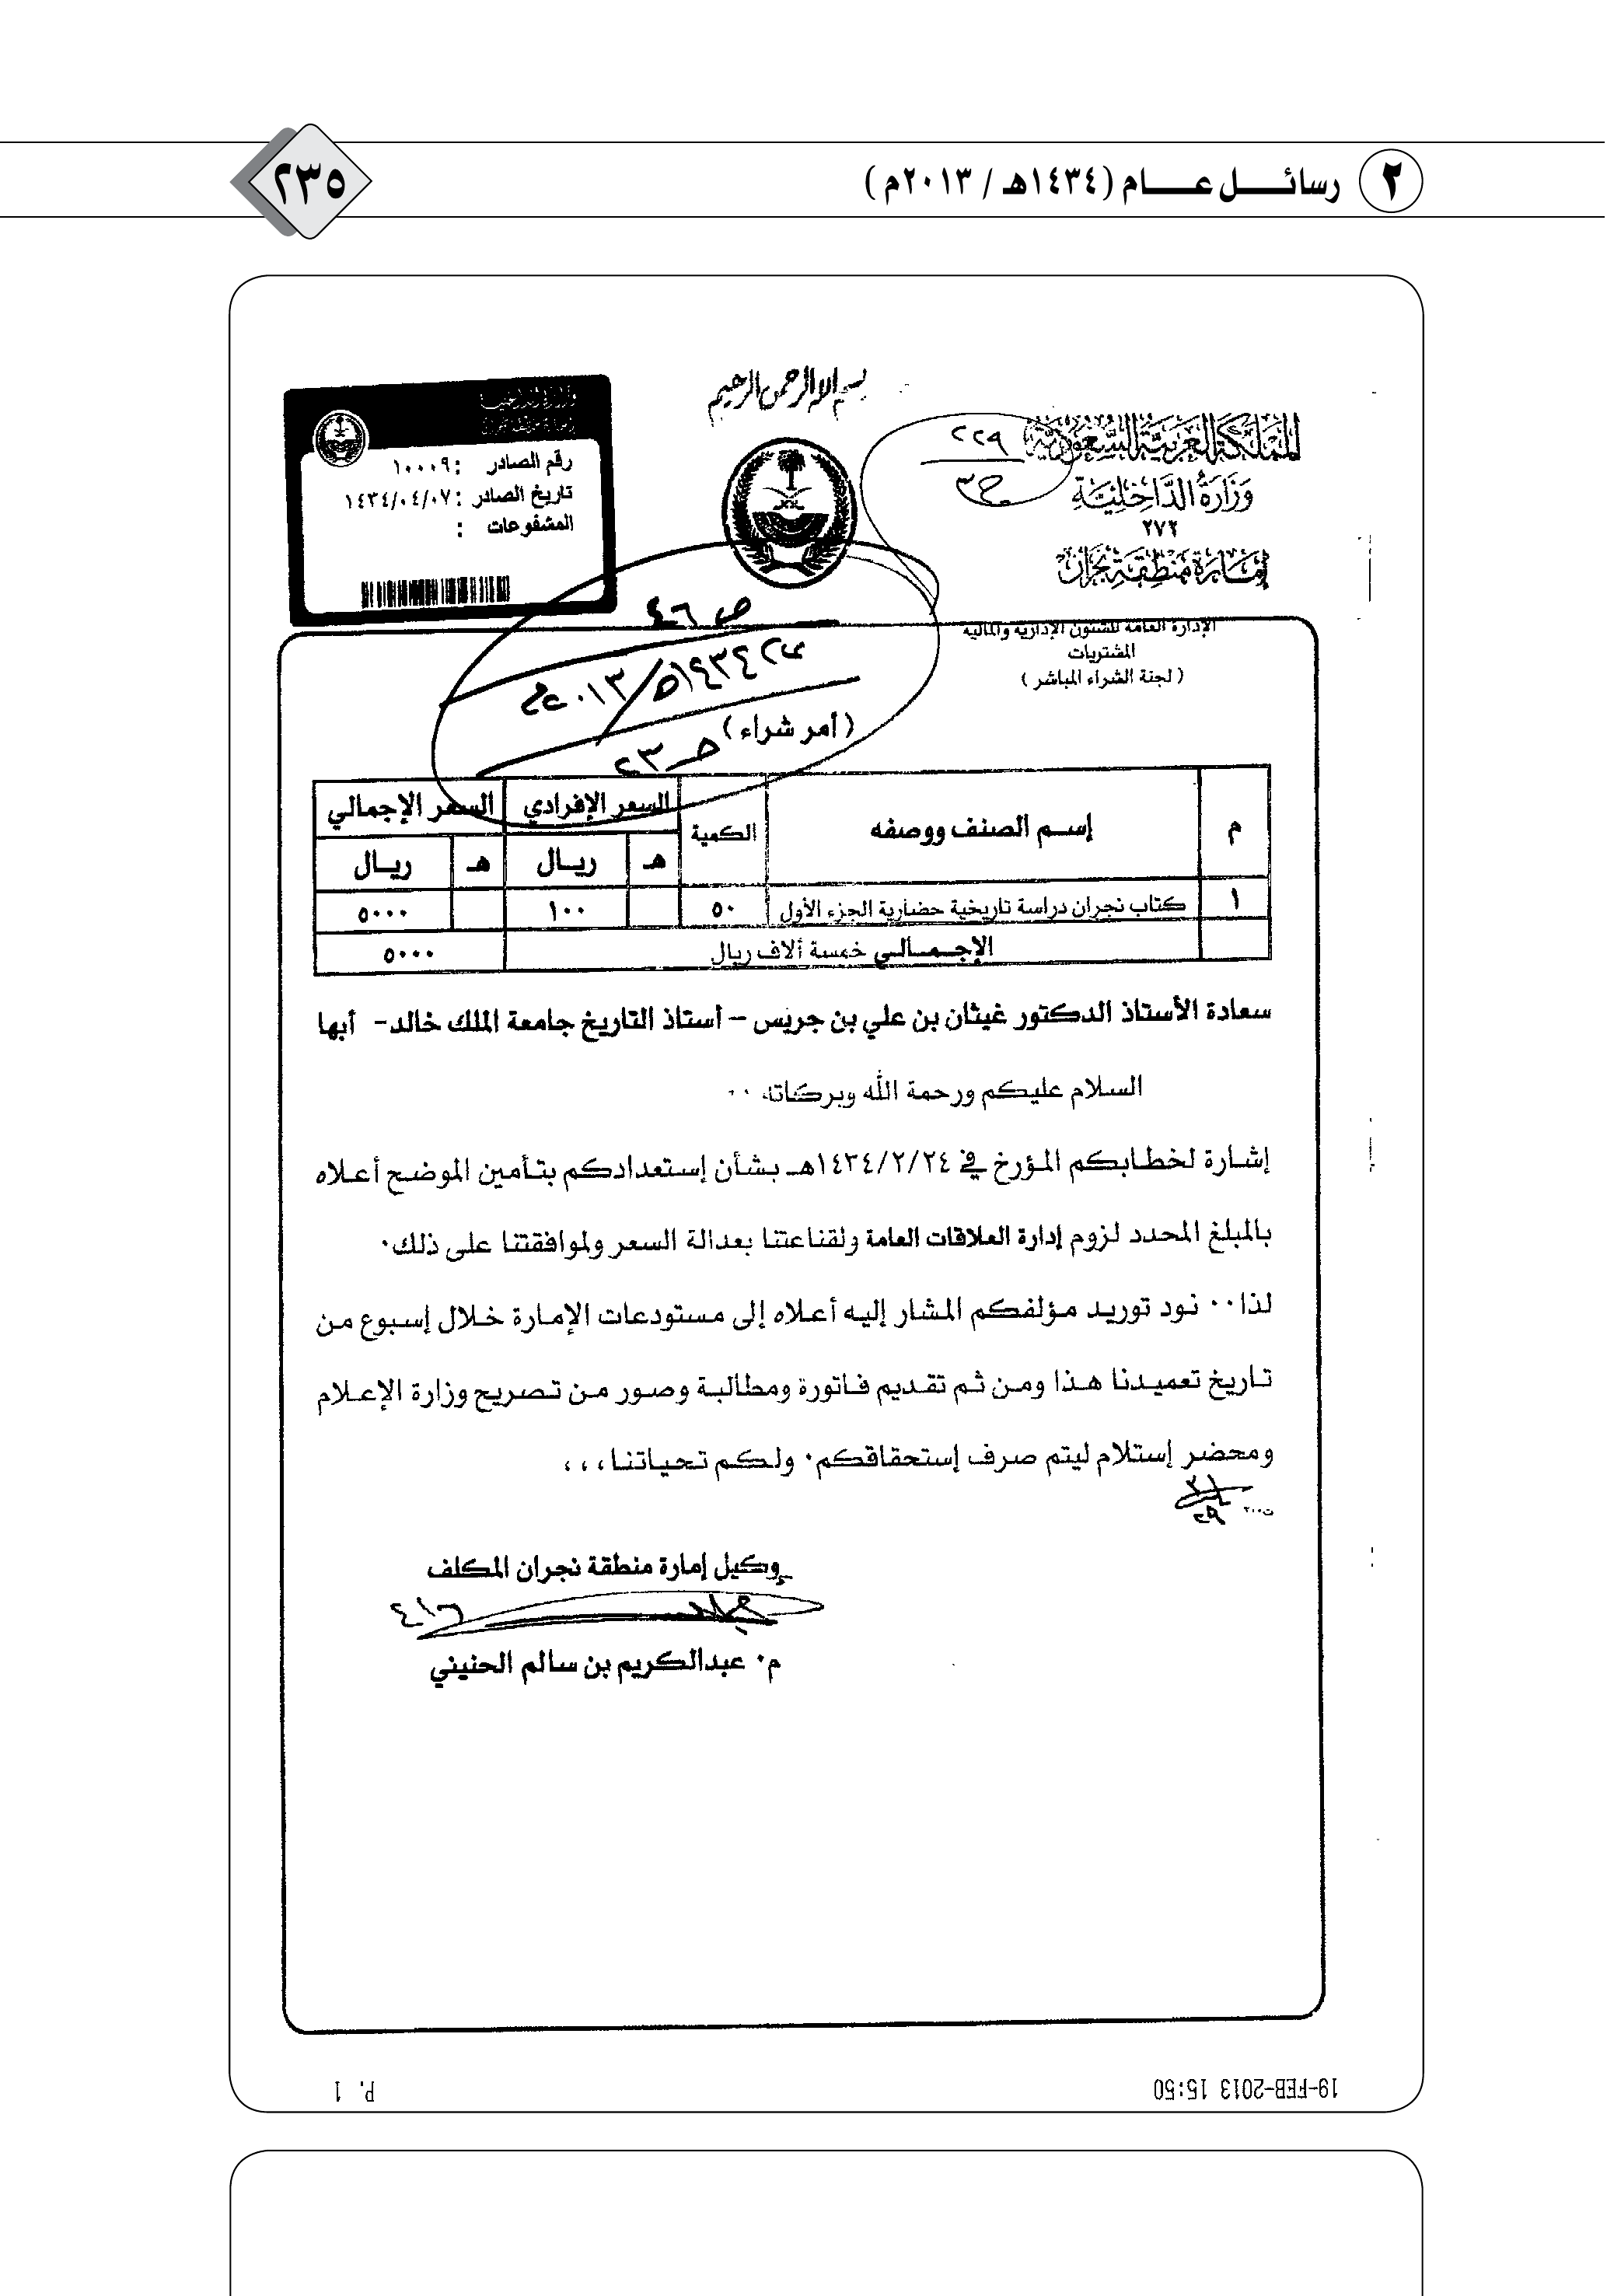 ٢ رسائل عام (١٤٣٤هـ / ٢٠١٣م)
٢٣٥
بسم الله الرحمن الرحيم
المملكة العربية السعودية
وزارة الداخلية
٢٧٢
إمارة منطقة نجران
الإدارة العامة للشئون الإدارية والمالية
المشتريات
( لجنة الشراء المباشر )
٢٢٩
رقم الصادر : ١٠٠٠٩
تاريخ الصادر : ١٤٣٤/٠٤/٠٧
المشفوعات :
ص ٤٦
١٤٣٤هـ/٢٠١٣م
(أمر شراء)
م إسم الصنف ووصفه الكمية السعر الإفرادي السعر الإجمالي
هـ ريال هـ ريال
١ كتاب نجران دراسة تاريخية حضارية الجزء الأول ٥٠ ١٠٠ ٥٠٠٠
الإجمالي خمسة ألاف ريال ٥٠٠٠
سعادة الأستاذ الدكتور غيثان بن علي بن جريس – أستاذ التاريخ جامعة الملك خالد- أبها
السلام عليكم ورحمة الله وبركاته ٠٠
إشارة لخطابكم المؤرخ في ١٤٣٤/٢/٢٤هـ بشأن إستعدادكم بتأمين الموضح أعلاه
بالمبلغ المحدد لزوم إدارة العلاقات العامة ولقناعتنا بعدالة السعر ولموافقتنا على ذلك٠
لذا٠٠ نود توريد مؤلفكم المشار إليه أعلاه إلى مستودعات الإمارة خلال إسبوع من
تاريخ تعميدنا هذا ومن ثم تقديم فاتورة ومطالبة وصور من تصريح وزارة الإعلام
ومحضر إستلام ليتم صرف إستحقاقكم٠ ولكم تحياتنا ، ، ،
وكيل إمارة منطقة نجران المكلف
م٠ عبدالكريم بن سالم الحنيني
19-FEB-2013 15:50
P. 1